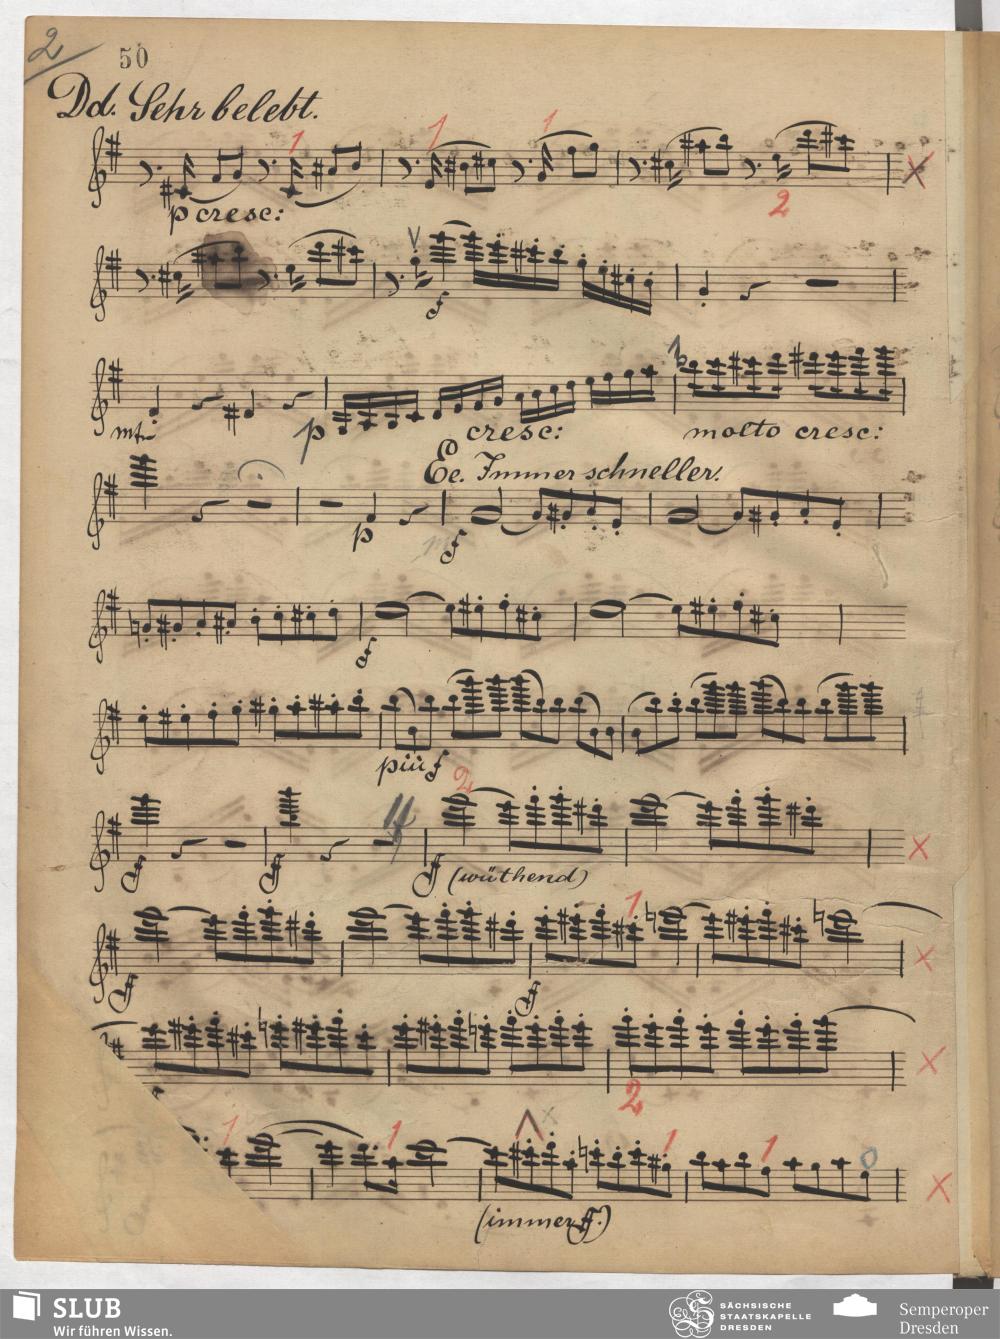 2
50
Dd. Sehr belebt.
1 1 1
2
p cresc:
V
f
mf p cresc: molto cresc:
Ee. Immer schneller.
p f
f
più f
2
ff ff ff (wüthend)
1
ff ff
2
1 1 1 1 0
(immer ff.)
SLUB
Wir führen Wissen.
SÄCHSISCHE
STAATSKAPELLE
DRESDEN
Semperoper
Dresden